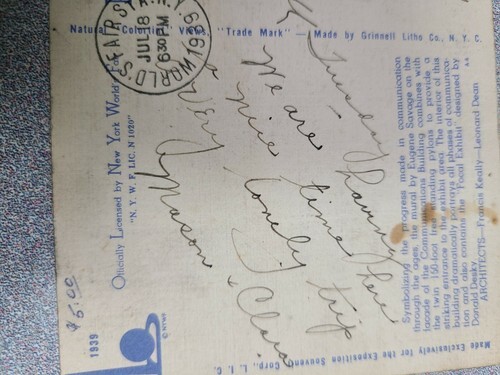 Natural Coloring Views, "Trade Mark" — Made by Grinnell Litho Co., N. Y. C.
WORLD'S FAIR STA. N.Y.
JUL 18
630 PM
1939
Tuesday
We are having
a nice time here
Very lonely trip
Mason & Clara
Symbolizing the progress made in communication
through the ages, the mural by Eugene Savage on the
facade of the Communications Building combines with
the twin 160-foot free-standing pylons to provide a
striking entrance to the exhibit area. The interior of this
building dramatically portrays all phases of communica-
tion and also contains the "Focal Exhibit" designed by
Donald Desky.
ARCHITECTS—Francis Keally—Leonard Dean
Officially Licensed by New York World's Fair
"N. Y. W. F. LIC. N 1020"
Made Exclusively for the Exposition Souvenir Corp., L. I. C.
1939
© NYWF
$5.00